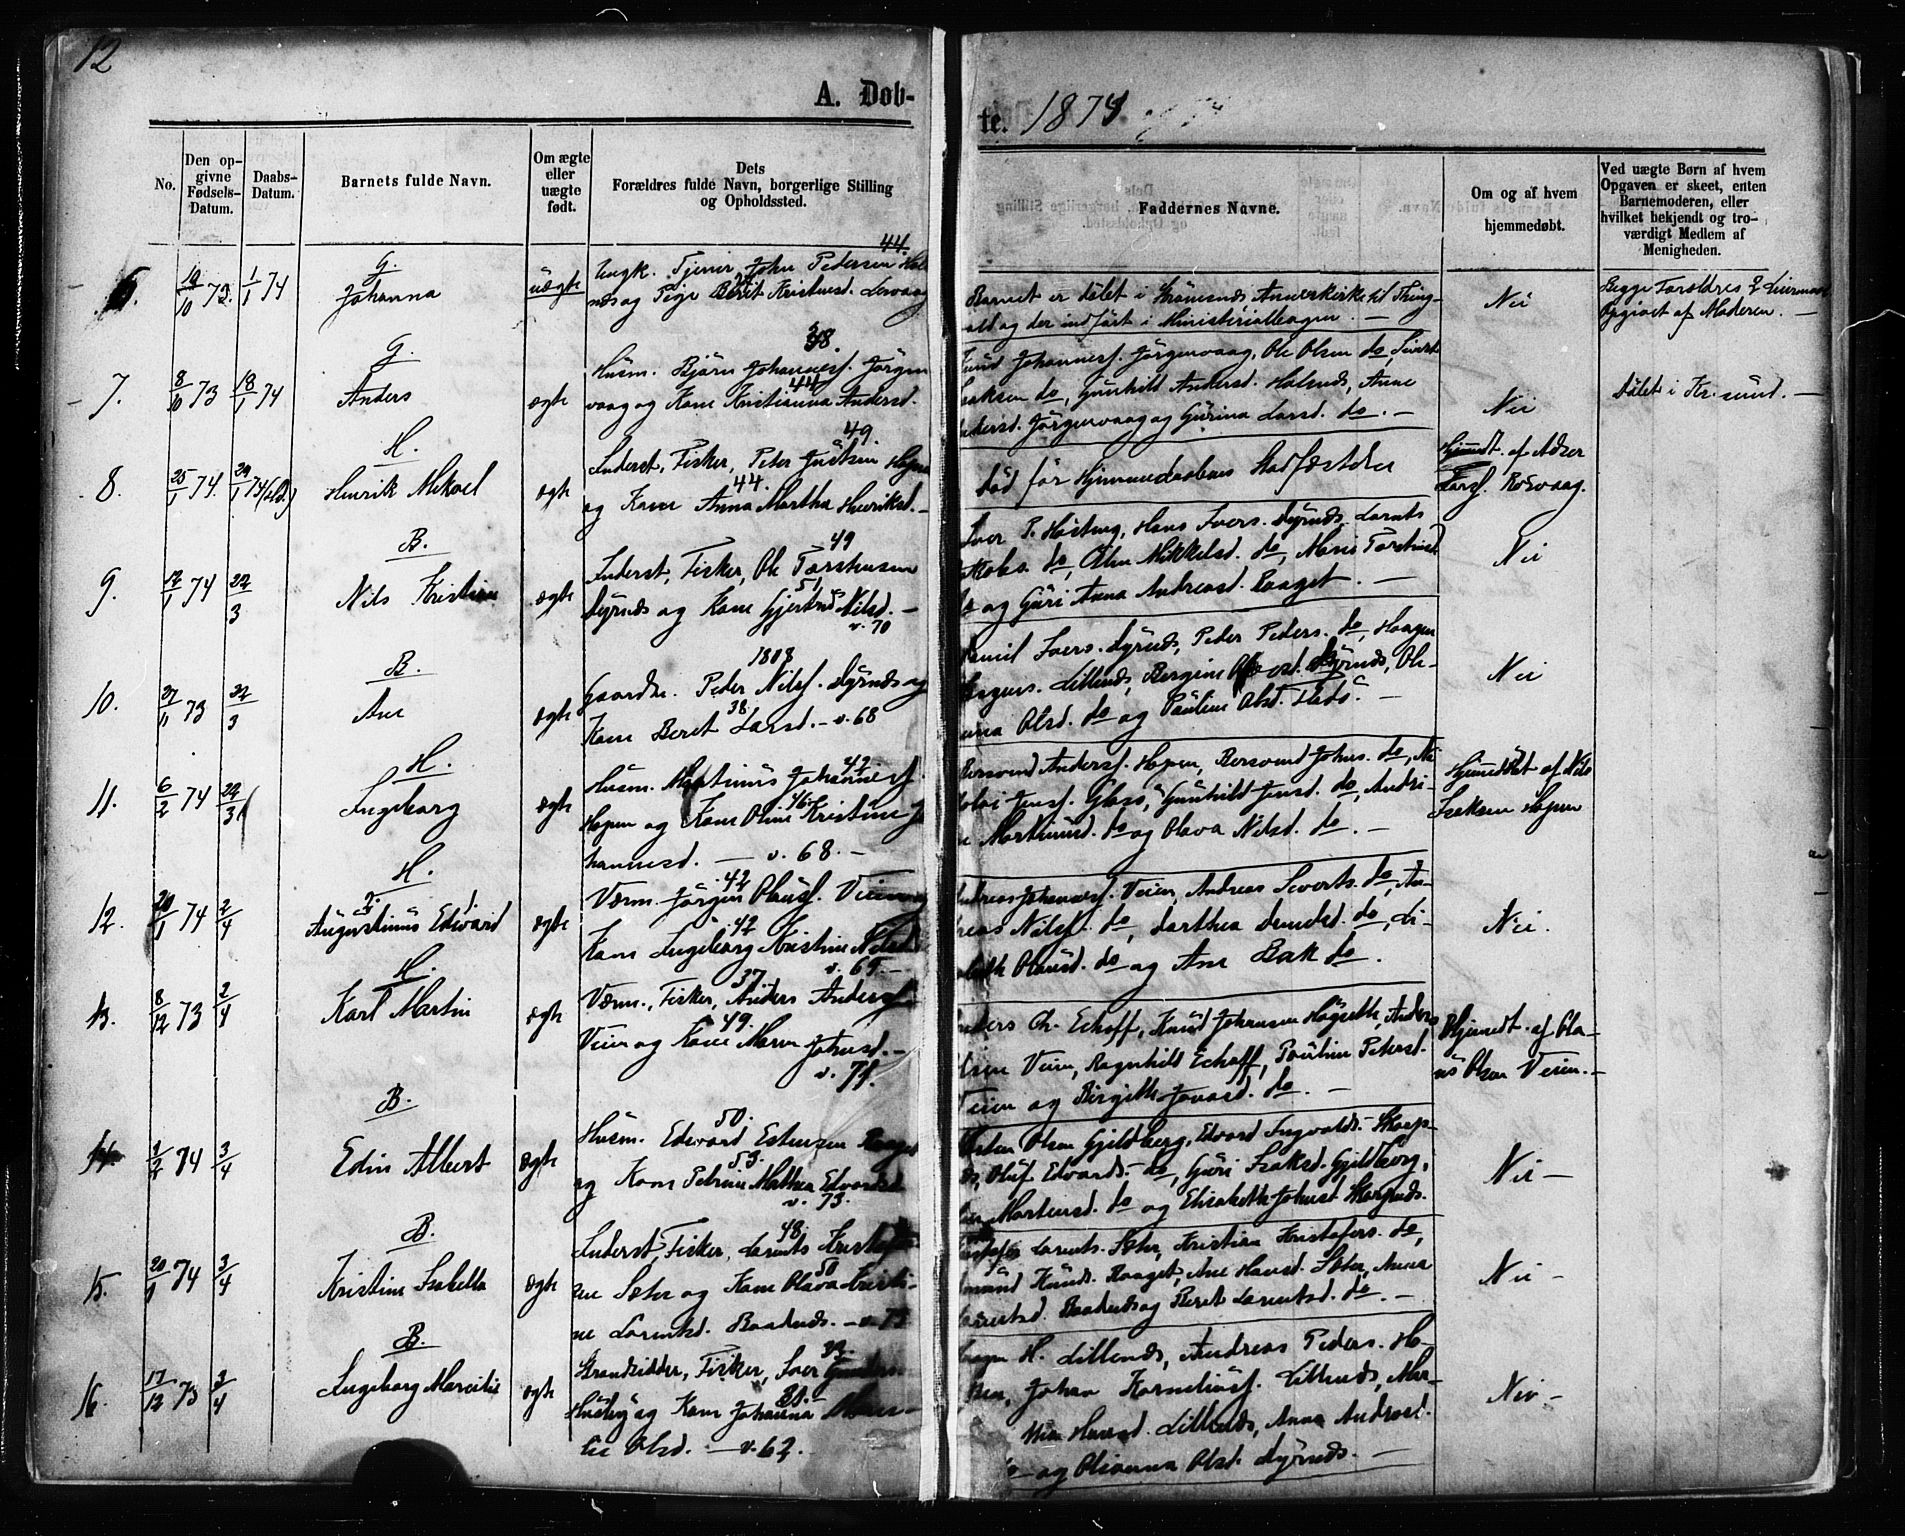 12
A. Døb-
te. 1874
No.
Den op-
givne
Fødsels-
Datum.
Daabs-
Datum.
Barnets fulde Navn.
Om ægte
eller
uægte
født.
Dets
Forældres fulde Navn, borgerlige Stilling
og Opholdssted.
Faddernes Navne.
Om og af hvem
hjemmedøbt.
Ved uægte Børn af hvem
Opgaven er skeet, enten
Barnemoderen, eller
hvilket bekjendt og tro-
værdigt Medlem af
Menigheden.
6. 19/10 73. 1/1 74
G.
Johanna
uægte
44.
Ungk. Tjener John Pedersen
og Pige Berit Kristensd.
Barnet er døbt i Annexkirke til Thing-
vold og der indført i Ministerialbogen. —
Nei
Begge Forældres
Opgivet af Moderen. —
7. 8/10 73 18/1 74
G.
Anders
ægte
38
Husm. Bjørn Johannesf. Jörgen
44
vaag og Kone Kristianna Andersd.
Knud Johannesf. Jörgenvaag, Ole Olsen do, Sivert
Isaksen do, Gunhild Andersd. Halsnæs, Anne
Andersd. Jörgenvaag og Gurina Larsd. do. —
Nei
Döbt i Kr.sund. —
8. 25/1 74. 29/1 74 (hd.)
H.
Henrik Mikael
ægte
49.
Inderst, Fisker, Peter Justsen Hopen
44.
og Kone Anna Martha Henriksd. —
död för Hjemmedaabens Stadfæstelse
Hjemdt. af Adser
Larsf. Rosvaag.
9. 17/1 74 22/3
B.
Nils Kristian
ægte
49
Inderst, Fisker, Ole Torstensen
51
Dyrnæs og Kone Gjertrud Nilsd. —
v. 70
Iver P. Hasting, Hans Ivers. Dyrnæs, Lornts
Jakobs. do, Elen Mikkelsd. do, Marie Torstensd.
do og Guri Anna Andreasd. Raaget. —
Nei
10. 27/11 73 22/3
B.
Ane
ægte
1808
Gaardm. Peder Nilsf. Dyrnæs og
38
Kone Beret Larsd. — v. 68
Ivers. Dyrnæs, Peder Peders. do, Haagen
Haagens. Lillenæs, Bergine Dyrnæs, Ole-
anna Olsd. do og Pauline Olsd. Fladö. —
Nei
11. 6/2 74 22/3
H.
Ingeborg
ægte
42
Husm. Martinus Johannesf.
46
Hopen og Kone Oline Kristine Jo
hannesd. — v. 68. —
Bersvend Andersf. Hopen, Bersvend Johns. do, Ni
kolai Jensf. Glasö, Gunhild Jensd. do, Andri-
ne Martinusd. do og Olava Nilsd. do. —
Hjemdöbt af Nils
Isaksen Hopen
12. 20/1 74 2/4
H.
Augustinus Edvard
ægte
42
Værm. Jörgen Olausf. Veien og
42
Kone Ingeborg Kristine Nilsd
v. 69. —
Andreas Johannesf. Veien, Andreas Siverts. do, An-
dreas Nilsf. do, Dorthea do, Li-
sabeth Olausd. do og Ane Bak do.
Nei.
13. 8/12 73 2/4
H.
Karl Martin
ægte
37
Værm., Fisker, Anders Andersf.
49.
Veien og Kone Maren Johnsd. —
v. 71.
Anders Ch. Echoff, Knud Johansen Högseth, Anders
Olsen Veien, Ragnhild Echoff, Pauline Petersd.
Veien og Birgithe Jonasd. do. —
Hjemdt. af Ola-
us Olsen Veien. —
14. 1/2 74 3/4
B.
Edin Albert
ægte
50.
Husm. Edvard Estensen Raaget
53.
og Kone Petrine Mathea Edvardsd
v. 73.
Esten Olsen Gjeldberg, Edvard Ingvalds. Skarp-
næs, Oluf Edvards. do, Guri Isaksd. Gjeldberg,
Mortensd. do og Elisabeth Johnsd. Skarpnæs.
Nei —
15. 20/1 74 3/4
B.
Kristine Isabella
ægte
48.
Inderst, Fisker, Lornts Kristof
50
ne Sæter og Kone Olava Kristi-
ne Lorntsd. Baadnæs. — v. 73
Kristofer Lornts. Sæter, Kristian Kristofers. do,
Knuds. Raaget, Ane Hansd. Sæter, Anna
Lorntsd. Baadnæs og Beret Lorntsd. do. —
Nei —
16. 17/12 73 3/4
B.
Ingeborg Marcelie
ægte
Strandsidder, Fisker, Iver
Husby og Kone Johanna
lie Olsd. — v. 62. —
Haagen H. Lillenæs, Andreas Peders. Ho-
pen, Johan Korneliusf. Lillenæs, Mar-
Hansd. Lillenæs, Anna Andreasd.
do og Oliverna Olsd. Dyrnæs. —
Nei —